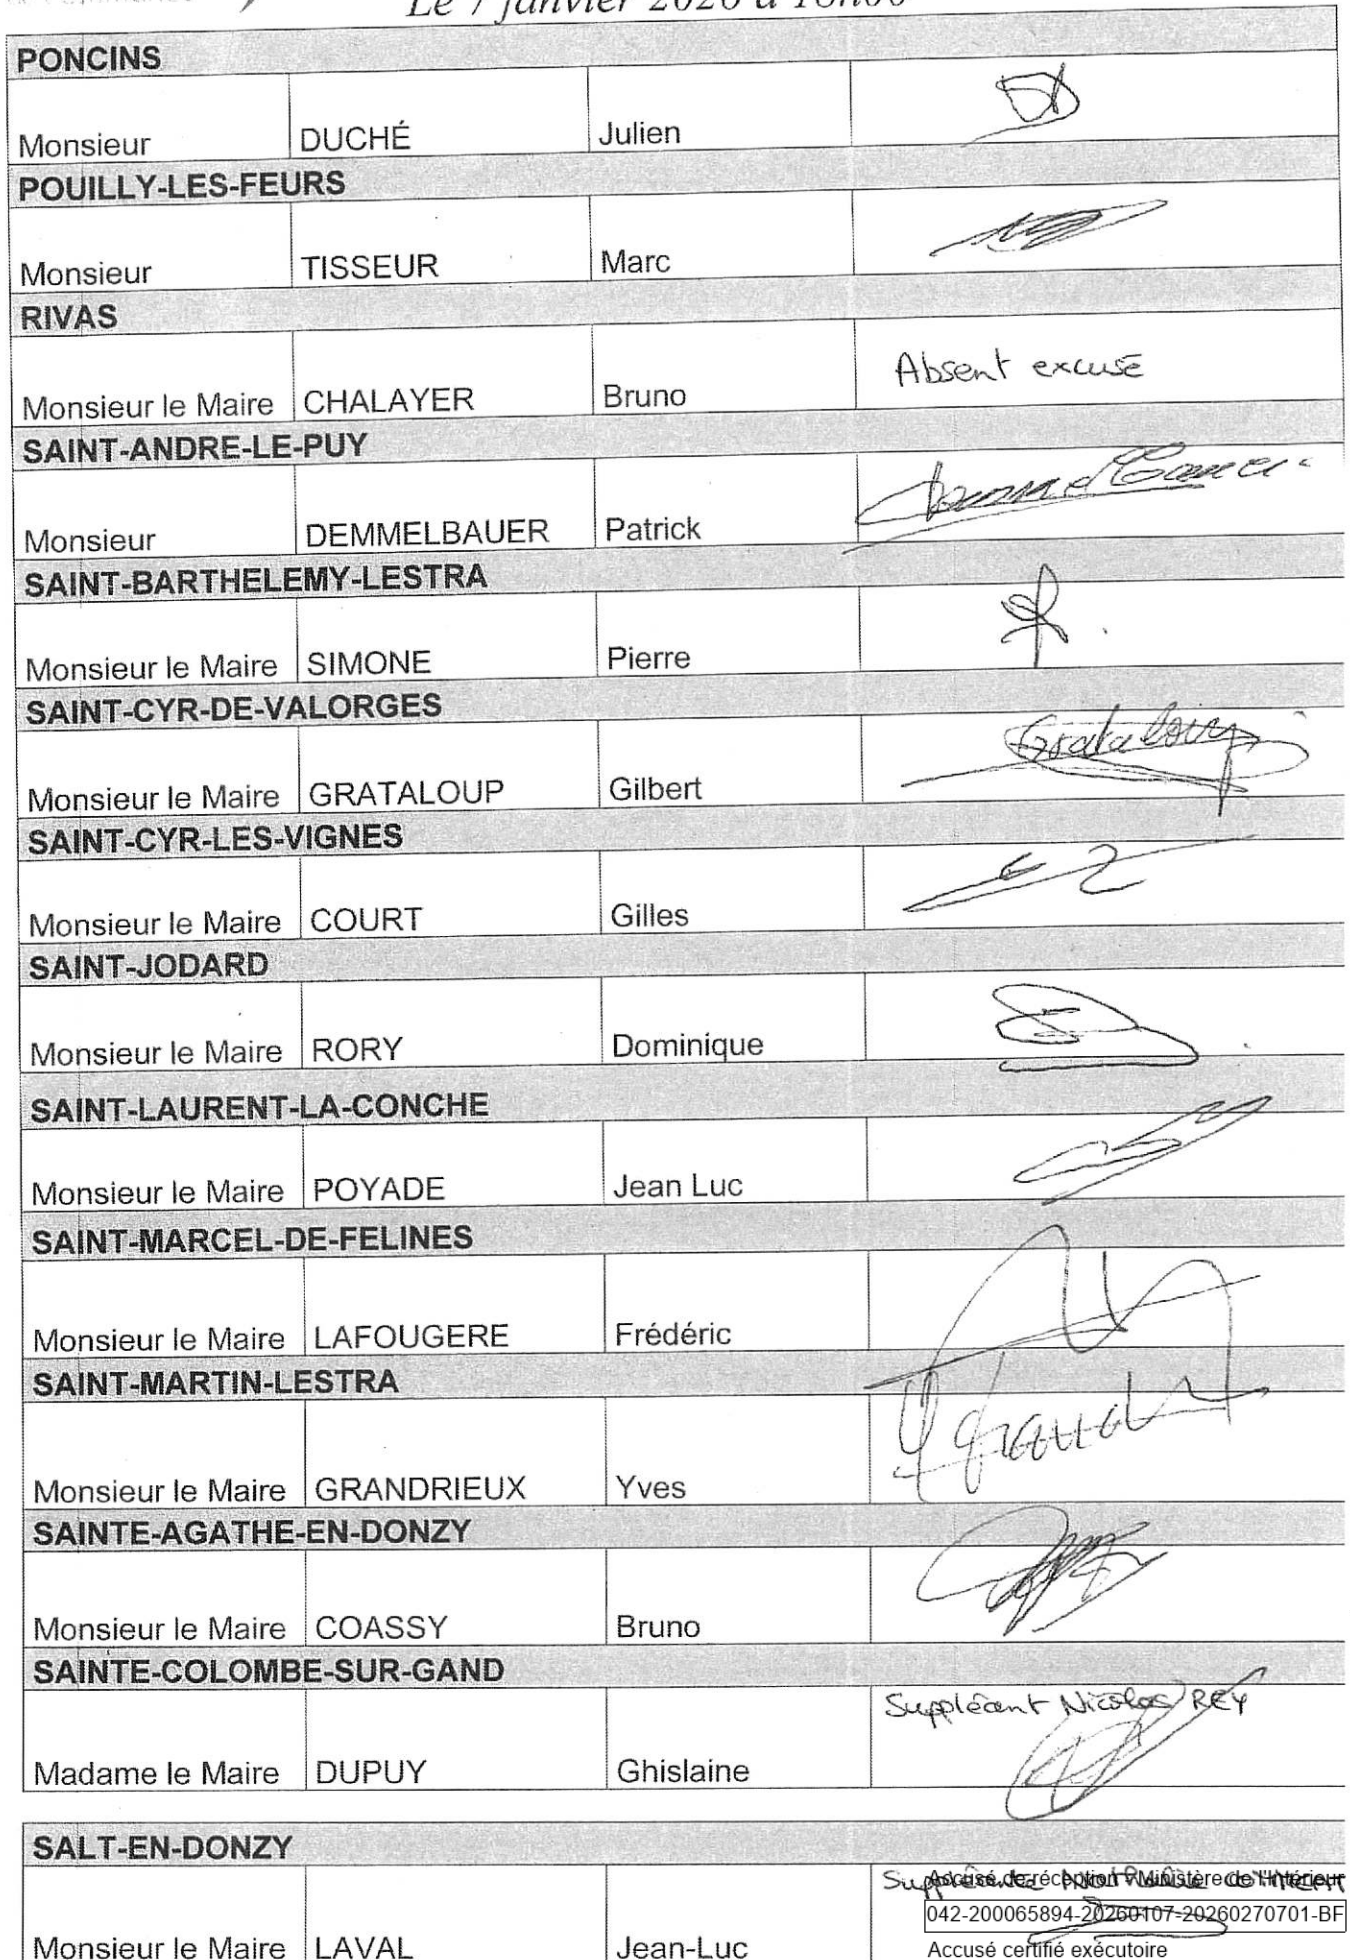 Le 7 janvier 2026 à 18h00
PONCINS
Monsieur DUCHÉ Julien
POUILLY-LES-FEURS
Monsieur TISSEUR Marc
RIVAS
Monsieur le Maire CHALAYER Bruno Absent excusé
SAINT-ANDRE-LE-PUY
Monsieur DEMMELBAUER Patrick
SAINT-BARTHELEMY-LESTRA
Monsieur le Maire SIMONE Pierre
SAINT-CYR-DE-VALORGES
Monsieur le Maire GRATALOUP Gilbert Grataloup
SAINT-CYR-LES-VIGNES
Monsieur le Maire COURT Gilles
SAINT-JODARD
Monsieur le Maire RORY Dominique
SAINT-LAURENT-LA-CONCHE
Monsieur le Maire POYADE Jean Luc
SAINT-MARCEL-DE-FELINES
Monsieur le Maire LAFOUGERE Frédéric
SAINT-MARTIN-LESTRA
Monsieur le Maire GRANDRIEUX Yves
SAINTE-AGATHE-EN-DONZY
Monsieur le Maire COASSY Bruno
SAINTE-COLOMBE-SUR-GAND
Suppléant Nicolas REY
Madame le Maire DUPUY Ghislaine
SALT-EN-DONZY
Suppléante
Accusé de réception - Ministère de l'Intérieur
042-200065894-20260107-20260270701-BF
Monsieur le Maire LAVAL Jean-Luc
Accusé certifié exécutoire